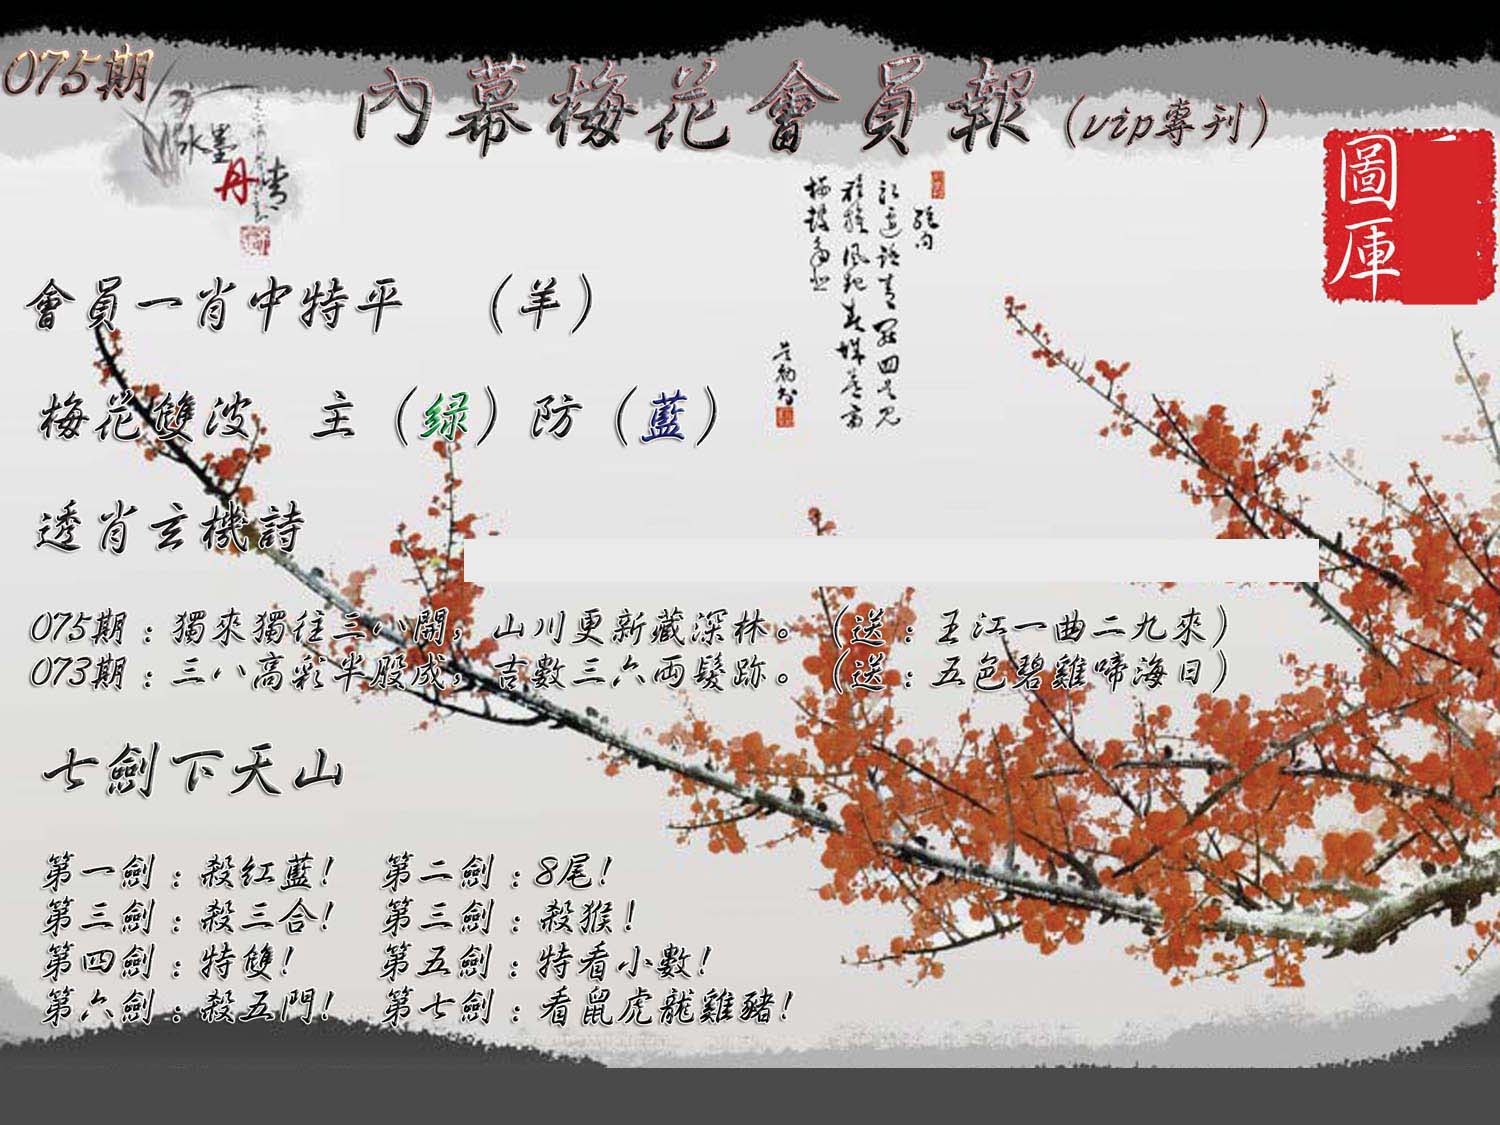 075期
內幕梅花會員報（vip專刊）
水墨
丹青
圖庫
會員一肖中特平　（羊）
梅花雙波　主（绿）防（藍）
透肖玄機詩
075期：獨來獨往三八開，山川更新藏深林。（送：王江一曲二九來）
073期：三八高彩半股成，吉數三六兩髮跡。（送：五色碧雞啼海日）
七劍下天山
第一劍：殺红藍！　第二劍：8尾！
第三劍：殺三合！　第三劍：殺猴！
第四劍：特雙！　第五劍：特看小數！
第六劍：殺五門！　第七劍：看鼠虎龍雞豬！